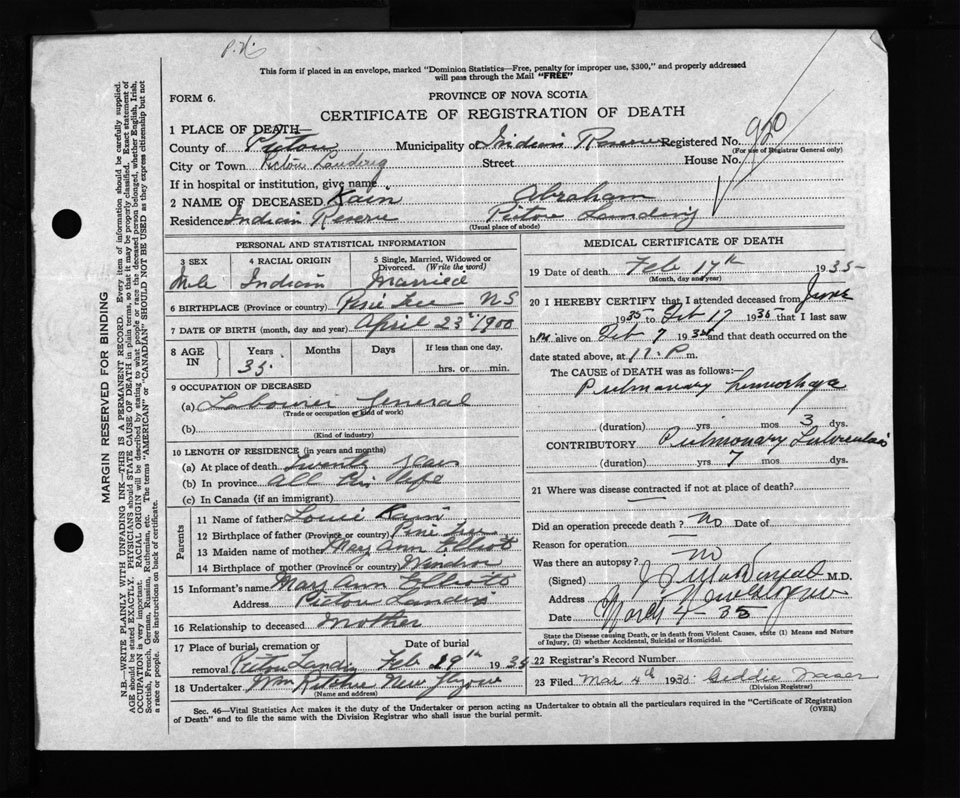 This form if placed in an envelope, marked "Dominion Statistics—Free, penalty for improper use, $300," and properly addressed
will pass through the Mail "FREE"
FORM 6.
PROVINCE OF NOVA SCOTIA
CERTIFICATE OF REGISTRATION OF DEATH
1 PLACE OF DEATH—
County of Pictou Municipality of Indian Reserve Registered No. 920
(For use of Registrar General only)
City or Town Pictou Landing Street House No.
If in hospital or institution, give name
2 NAME OF DECEASED Kain Abraham
Residence Indian Reserve Pictou Landing
(Usual place of abode)
PERSONAL AND STATISTICAL INFORMATION
3 SEX 4 RACIAL ORIGIN 5 Single, Married, Widowed or
Divorced. (Write the word)
Indian Married
6 BIRTHPLACE (Province or country) Pine Tree NS
7 DATE OF BIRTH (month, day and year) April 23 1900
8 AGE IN Years Months Days If less than one day.
35 hrs. or min.
9 OCCUPATION OF DECEASED
(a) Labourer General
(Trade or occupation or kind of work)
(b)
(Kind of industry)
10 LENGTH OF RESIDENCE (in years and months)
(a) At place of death Twenty years
(b) In province all his life
(c) In Canada (if an immigrant)
Parents
11 Name of father Louie Kain
12 Birthplace of father (Province or country) Pine Tree
13 Maiden name of mother Mary Ann Elliott
14 Birthplace of mother (Province or country) Windsor
15 Informant's name Mary Ann Elliott
Address Pictou Landing
16 Relationship to deceased Mother
17 Place of burial, cremation or Date of burial
removal Pictou Landing Feb 19th 1935
18 Undertaker Wm Ritchie New Glasgow
(Name and address)
MEDICAL CERTIFICATE OF DEATH
19 Date of death Feb 17th 1935
(Month, day and year)
20 I HEREBY CERTIFY that I attended deceased from June
1935 to Feb 17 1935 that I last saw
him alive on 7 193 and that death occurred on the
date stated above, at P.m.
The CAUSE OF DEATH was as follows:—
Pulmonary hemorhage
(duration) yrs mos 3 dys.
CONTRIBUTORY Pulmonary Tuberculosis
(duration) yrs 7 mos dys.
21 Where was disease contracted if not at place of death?
Did an operation precede death? No Date of
Reason for operation
Was there an autopsy? no
(Signed) M.D.
Address New Glasgow
Date March 4 - 35
State the Disease causing Death, or in death from Violent Causes, state (1) Means and Nature
of Injury, (2) whether Accidental, Suicidal or Homicidal.
22 Registrar's Record Number
23 Filed Mar 4th 1935 Geddie Fraser
(Division Registrar)
Sec. 46—Vital Statistics Act makes it the duty of the Undertaker or person acting as Undertaker to obtain all the particulars required in the "Certificate of Registration
of Death" and to file the same with the Division Registrar who shall issue the burial permit. (OVER)
MARGIN RESERVED FOR BINDING
N.B.—WRITE PLAINLY WITH UNFADING INK—THIS IS A PERMANENT RECORD. Every item of information should be carefully supplied.
AGE should be stated EXACTLY. PHYSICIANS should STATE CAUSE OF DEATH in plain terms, so that it may be properly classified. Exact statement of
OCCUPATION is very important. RACIAL ORIGIN will be described by stating to what people or race the deceased person belonged, whether English, Irish,
Scottish, French, German, Russian, Ruthenian, etc. The terms "AMERICAN" or "CANADIAN" SHOULD NOT BE USED as they express citizenship but not
a race or people. See instructions on back of certificate.